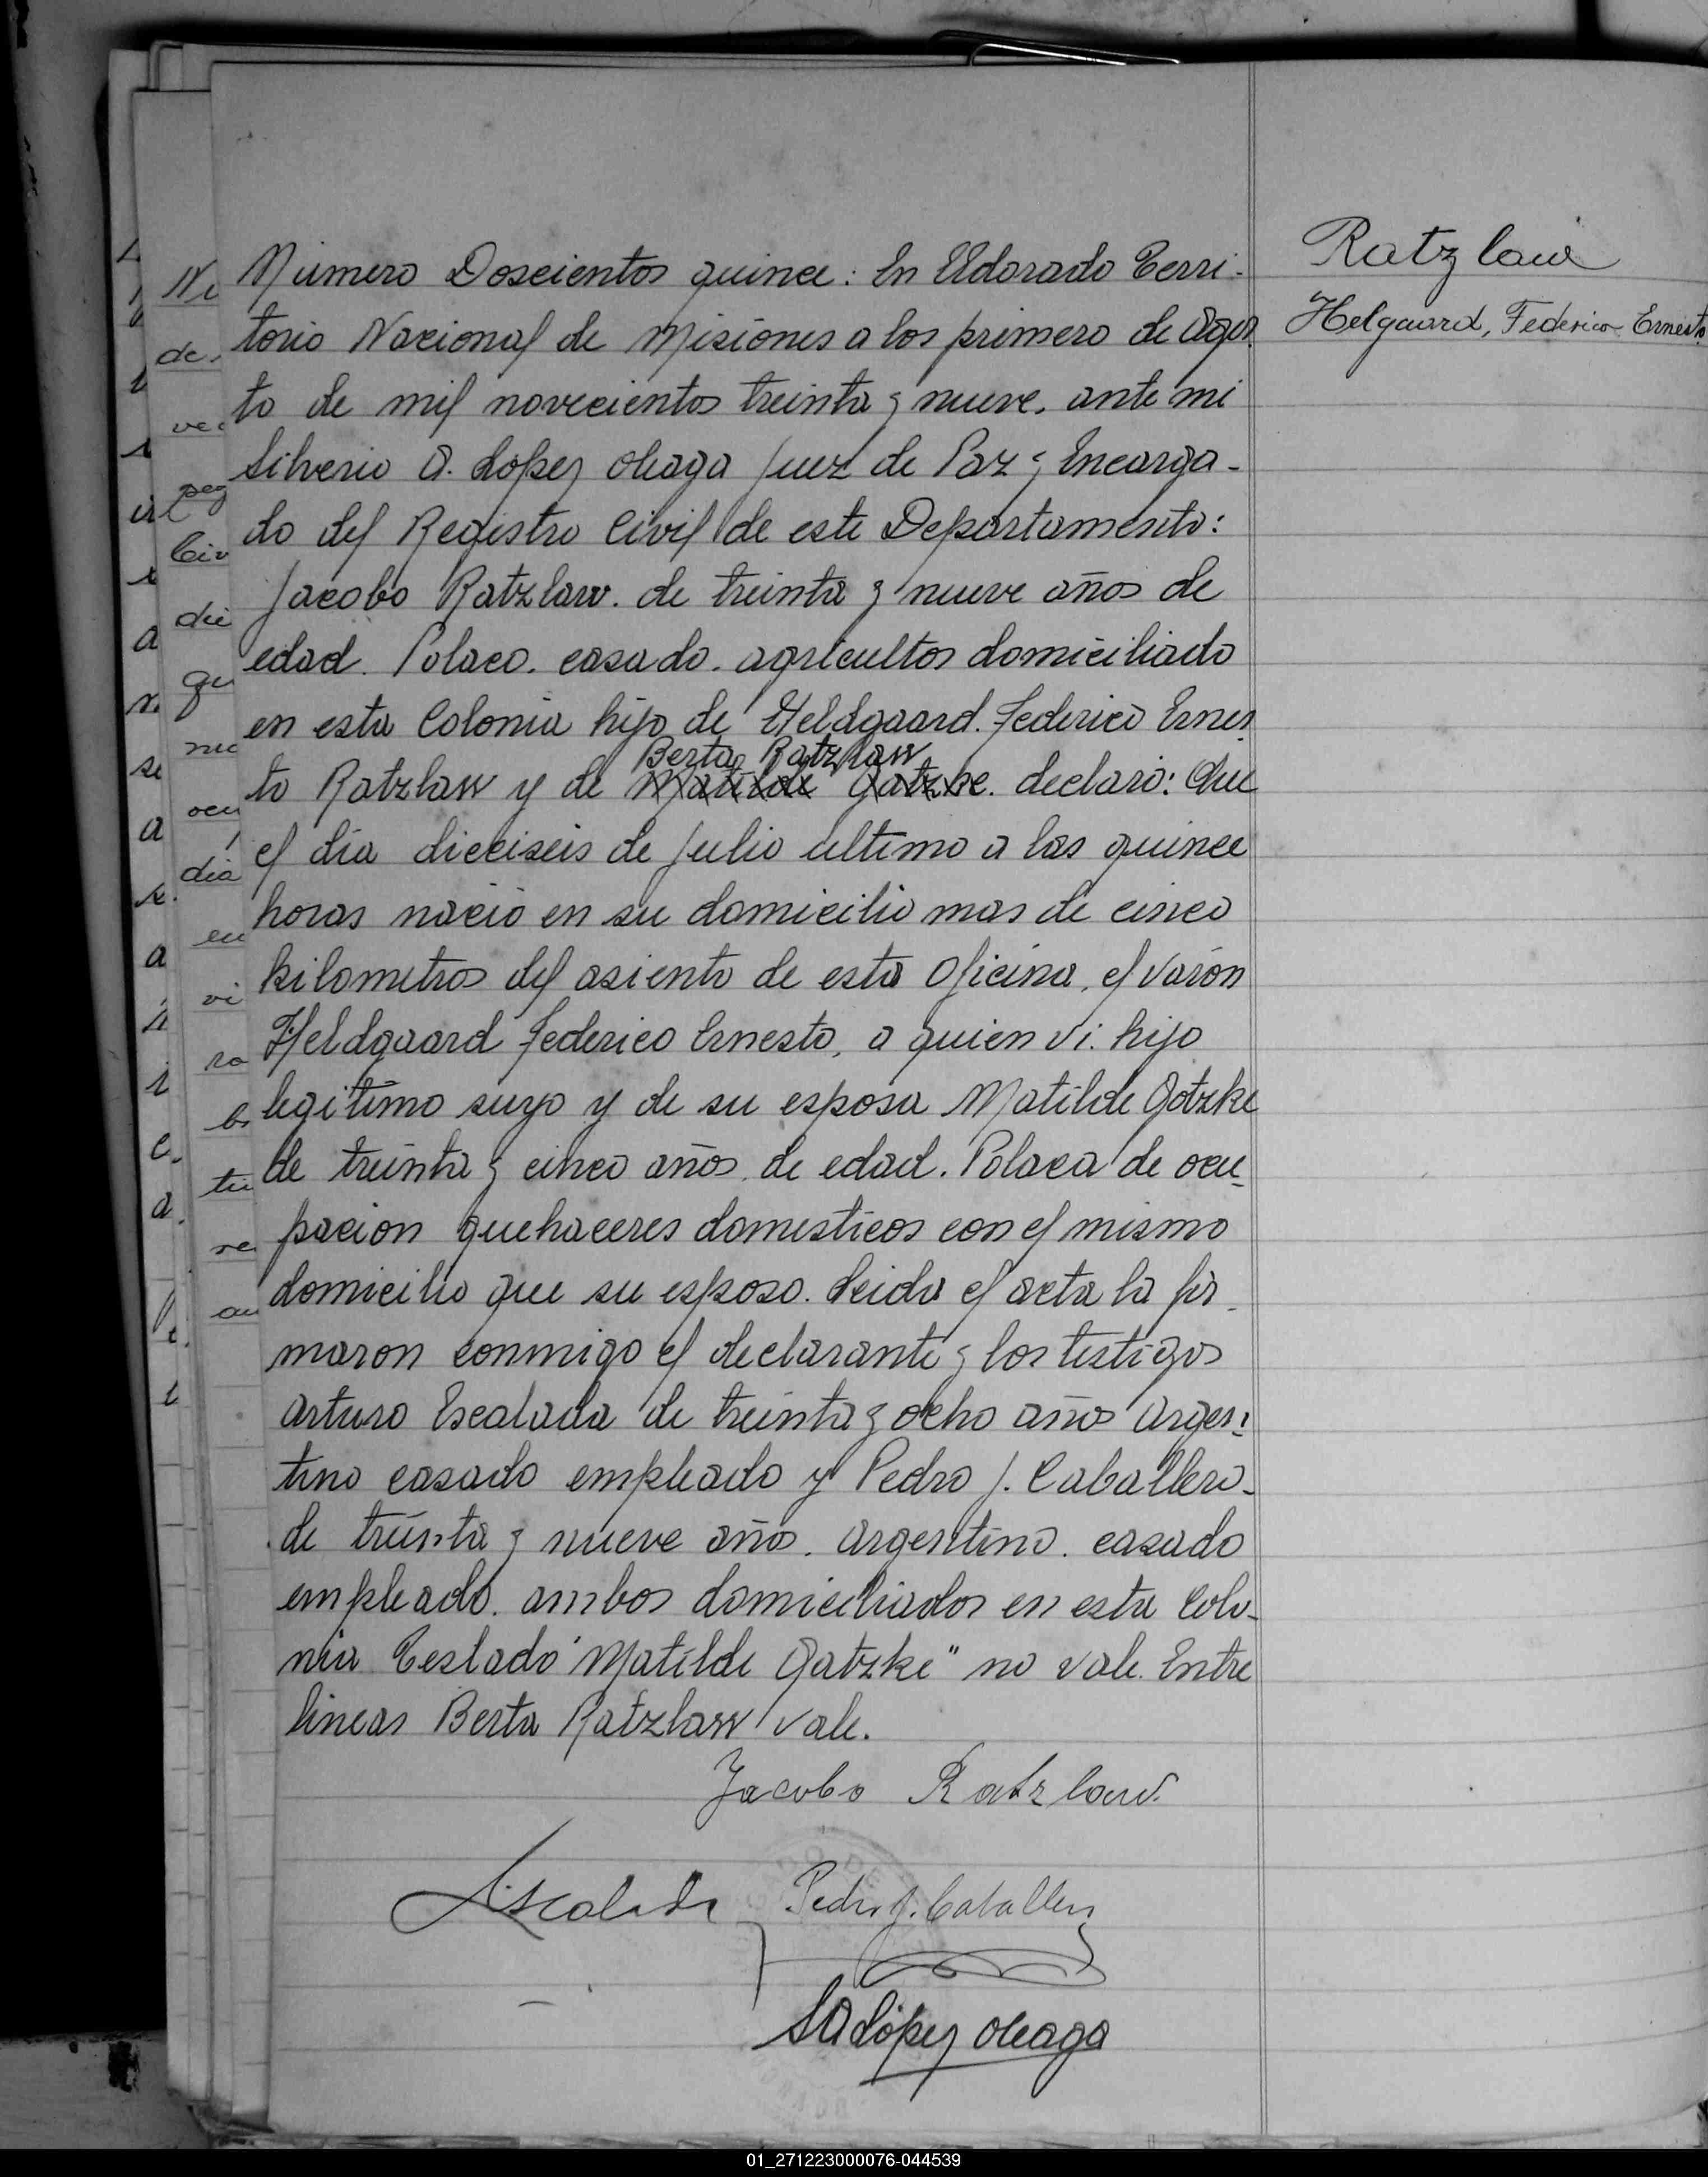 Ratzlaw
Helgaard, Federico Ernesto
Número Doscientos quince: En Eldorado Terri-
torio Nacional de Misiones a los primero de Agos-
to de mil novecientos treinta y nueve. ante mi
Silverio A. López Oleaga Juez de Paz y Encarga-
do del Registro Civil de este Departamento:
Jacobo Ratzlaw. de treinta y nueve años de
edad. Polaco. casado. agricultor domiciliado
en esta Colonia hijo de Heldgaard. Federico Ernes-
Berta Ratzlaw
to Ratzlaw y de Matilde Gatzke. declaró: Que
el día dieciseis de Julio último a las quince
horas nació en su domicilio mas de cinco
kilometros del asiento de esta Oficina, el varón
Heldgaard Federico Ernesto, a quien vi. hijo
legítimo suyo y de su esposa Matilde Gotzke
de treinta y cinco años de edad. Polaca de ocu-
pacion quehaceres domesticos con el mismo
domicilio que su esposo. Leida el acta la fir-
maron conmigo el declarante y los testigos
Arturo Escalada de treinta y ocho años Argen-
tino casado empleado y Pedro J. Caballero-
de treinta y nueve año. Argentino. casado
empleado. ambos domiciliados en esta Colo-
nia Testado "Matilde Gatzke" no vale. Entre
lineas Berta Ratzlaw vale.
Jacobo Ratzlaw.
AEscalada Pedro J. Caballero
SALópez Oleaga
01_271223000076-044539